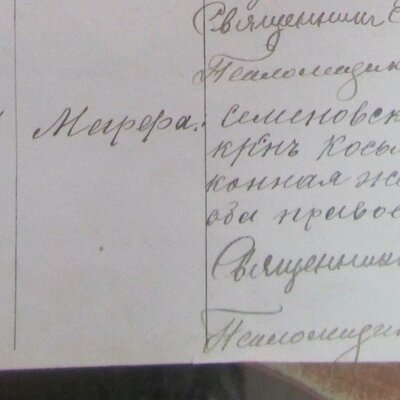 Священник С
Псаломщик
Марѳа. Семеновск
крнъ Косьм
конная же
оба правос
Священник
Псаломщик